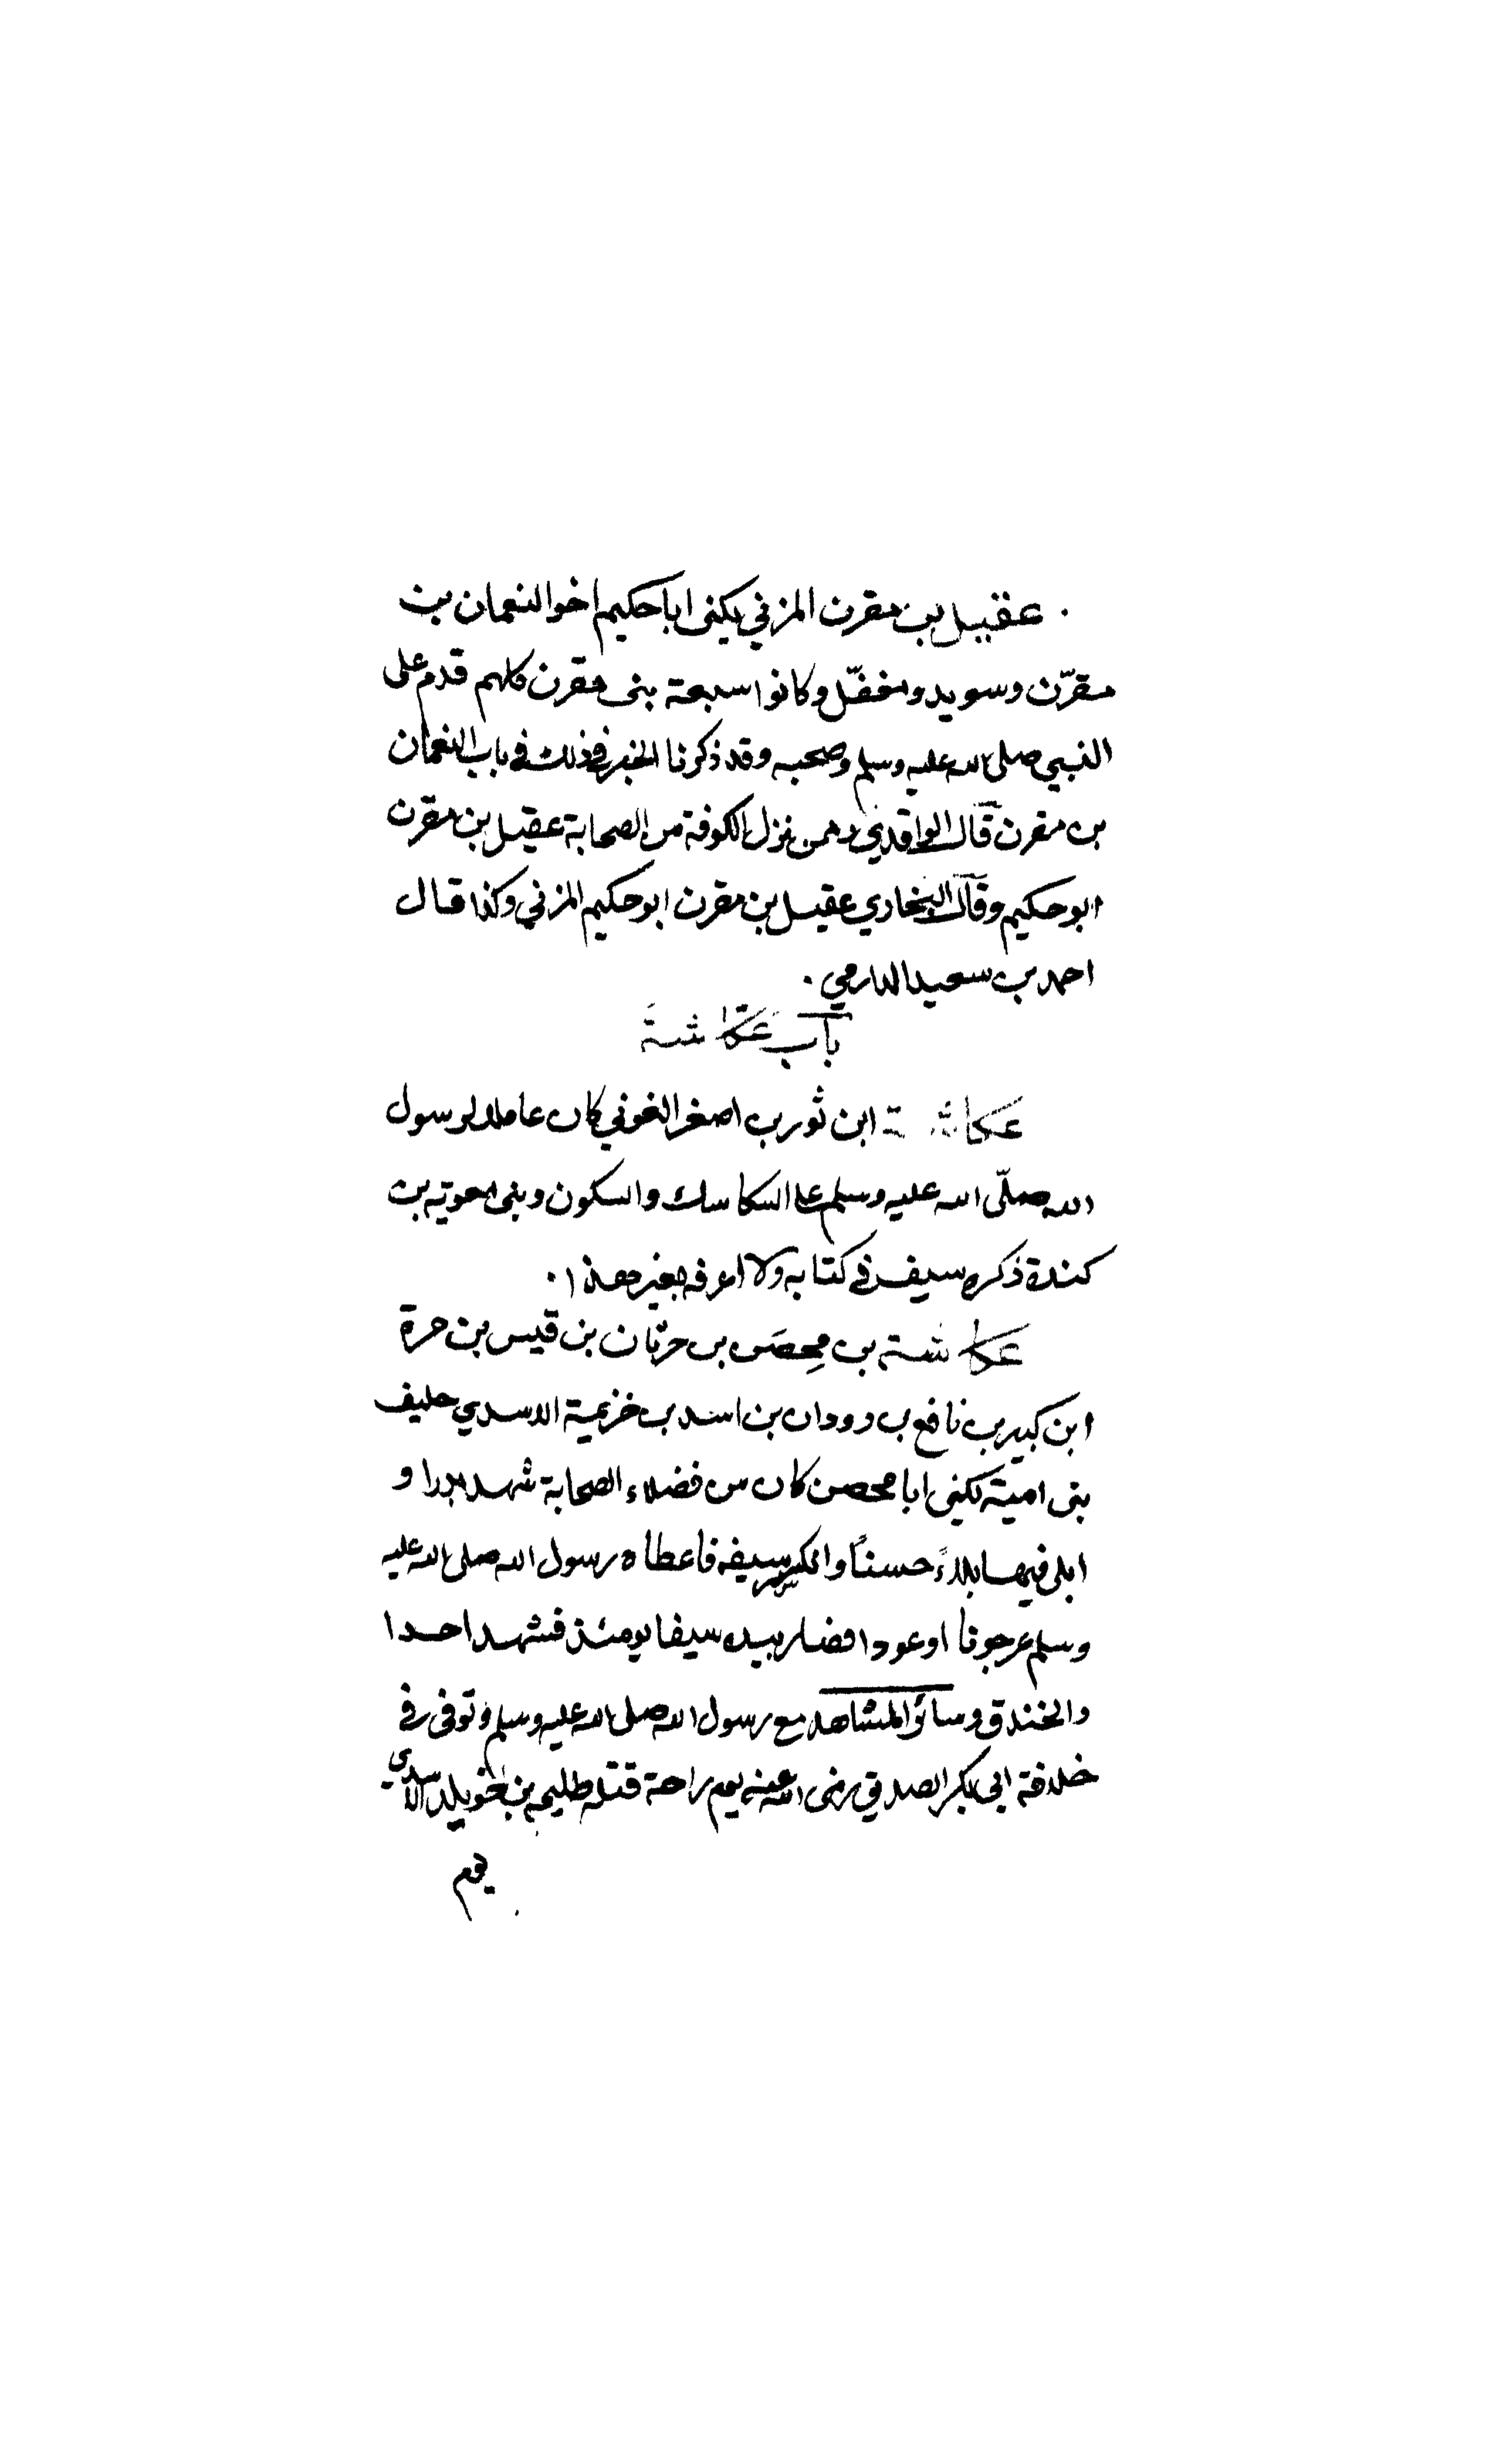 عقيل بن مقرن المزني يكنى ابا حكيم اخو النعمان بن
مقرّن وسويد ومغفّل وكانوا سبعة بنى مقرن كلهم قدم على
النبي صلى الله عليه وسلم وصحبه وقد ذكرنا الخبر في ذلك في باب النعمان
بن مقرن قال الواقدي وممن نزل الكوفة من الصحابة عقيل بن مقرن
ابو حكيم وقال البخاري عقيل بن مقرن ابو حكيم المزني وكذا قال
احمد بن سعيد الدارمي .
باب عكاشة
عكاشة ابن ثور بن اصغر الغوثي كان عاملا لرسول
الله صلّى الله عليه وسلم على السكاسك والسكون وبنى معوية بن
كندة ذكره سيف في كتابه ولا اعرفه بغير هذا .
عكاشة بن مِحصَن بن حرثان بن قيس بن مرة
ابن كبير بن نافع بن دودان بن اسد بن خزيمة الاسدي حليف
بنى امية يكنى ابا محصن كان من فضلاء الصحابة شهد بدرا و
ابلى فيها بلاءً حسناً وانكسر سيفه فاعطاه رسول الله صلى الله عليه
وسلم عرجونا او عودا فصار بيده سيفا يومئذ فشهد احدا
والخندق وسائر المشاهد مع رسول الله صلى الله عليه وسلم وتوفى في
خلافة ابى بكر الصديق رضى الله عنه يوم قتله طليحة بن خويلد الاسدي
يوم